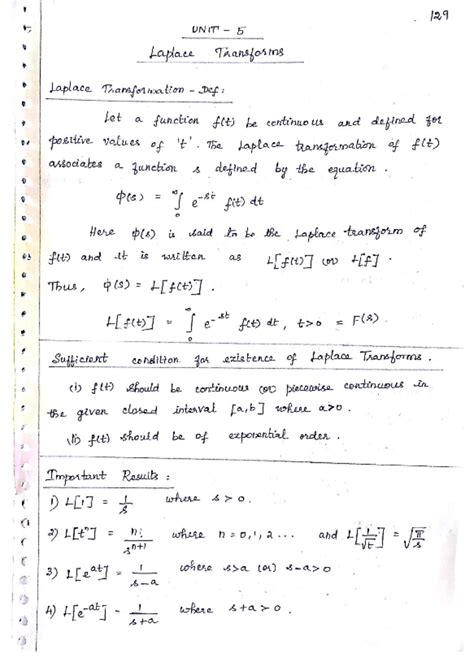 129
UNIT - 5
Laplace Transforms
Laplace Transformation - Def:
Let a function f(t) be continuous and defined for
positive values of 't'. The Laplace transformation of f(t)
associates a function s defined by the equation.
φ(s) = ∫₀^∞ e^-st f(t) dt
Here φ(s) is said to be the Laplace transform of
f(t) and it is written as L[f(t)] (or) L[f].
Thus, φ(s) = L[f(t)].
L[f(t)] = ∫₀^∞ e^-st f(t) dt, t>0 = F(s)
Sufficient condition for existence of Laplace Transforms.
(i) f(t) should be continuous (or) piecewise continuous in
the given closed interval [a,b] where a>0.
(ii) f(t) should be of exponential order.
Important Results:
1) L[1] = 1/s where s > 0.
2) L[t^n] = n!/s^(n+1) where n = 0,1,2 ... and L[1/√t] = √(π/s)
3) L[e^at] = 1/(s-a) where s>a (or) s-a>0
4) L[e^-at] = 1/(s+a) where s+a>0.